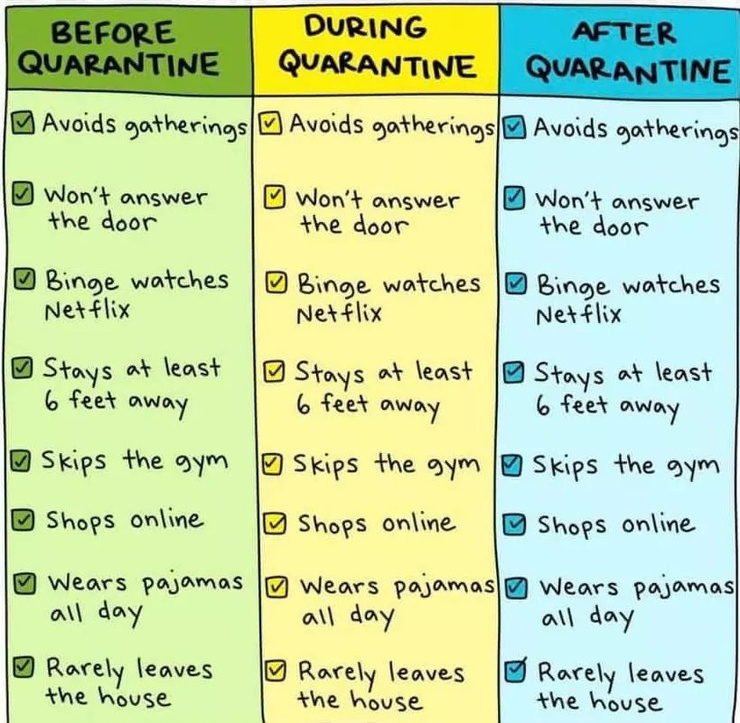 BEFORE
QUARANTINE
Avoids gatherings
Won't answer
the door
Binge watches
Netflix
Stays at least
6 feet away
Skips the gym
Shops online
Wears pajamas
all day
Rarely leaves
the house
DURING
QUARANTINE
Avoids gatherings
Won't answer
the door
Binge watches
Netflix
Stays at least
6 feet away
Skips the gym
Shops online
Wears pajamas
all day
Rarely leaves
the house
AFTER
QUARANTINE
Avoids gatherings
Won't answer
the door
Binge watches
Netflix
Stays at least
6 feet away
Skips the gym
Shops online
Wears pajamas
all day
Rarely leaves
the house